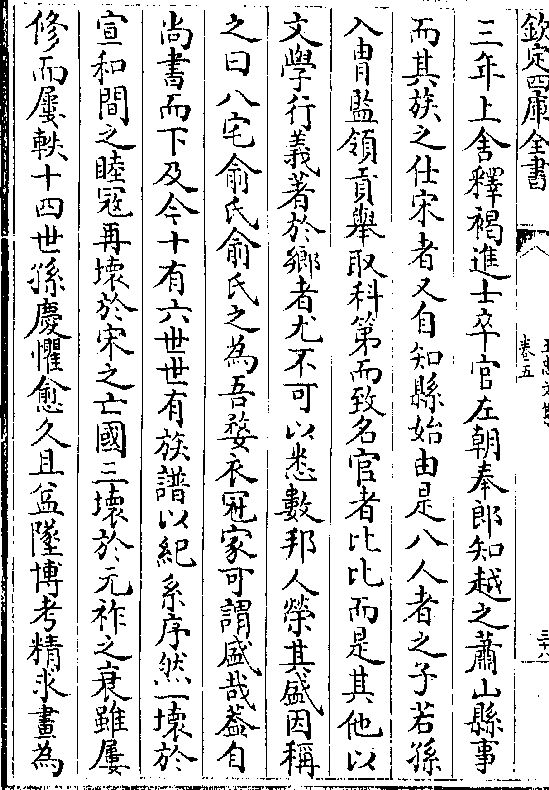 欽定四庫全書
卷五
三年上舍釋褐進士卒官左朝奉郎知越之蕭山縣事
而其族之仕宋者又自知縣始由是八人者之子若孫
入胄監領貢舉取科第而致名官者比比而是其他以
文學行義著於鄉者尤不可以悉數邦人榮其盛因稱
之曰八宅俞氏俞氏之為吾婺衣冠家可謂盛哉蓋自
尚書而下及今十有六世世有族譜以紀系序然一壊於
宣和間之睦冦再壊於宋之亡國三壊於元祚之衰雖屢
修而屢軼十四世孫慶懼愈久且益墜博考精求畫為